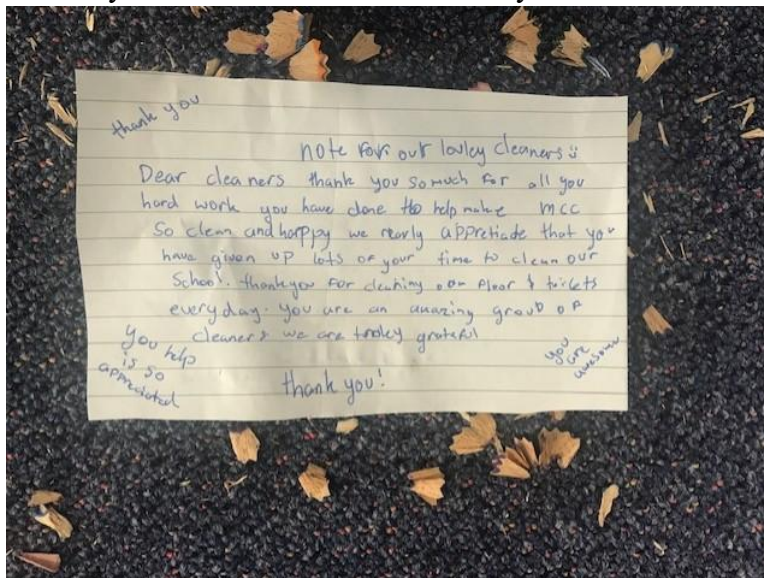 thank you
note for our lovley cleaners
Dear cleaners thank you so much for all you
hard work you have done to help make MCC
so clean and happy we rearly appretiate that you
have given up lots of your time to clean our
School. thankyou for cleaning our floor & toilets
everyday. you are an amazing group of
cleaners we are trooley grateful
You help
is so
appreciated
you
are
awesome
thank you!